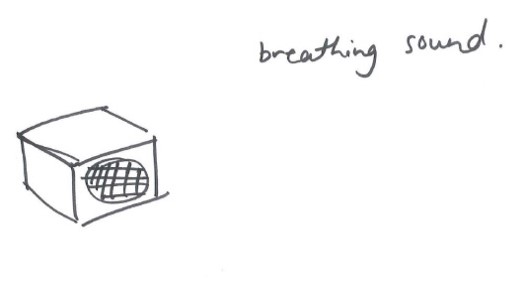 breathing sound.